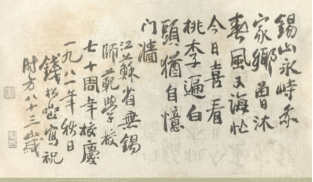 锡山永峙赤
家乡曾沐
春风又海忙
今日喜看
桃李遍白
頭猶自憶
门墙
江蘇省無锡
師範學校
七十周年校慶
一九八一年秋日
錢松喦寫祝
时方八十三歲